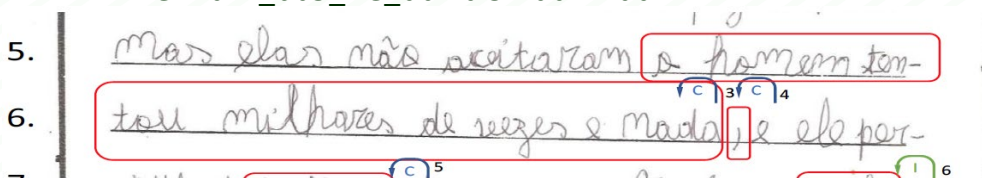 5. mas elas não aceitaram o homem ten-
C 3 C 4
6. tou milhares de vezes e nada, e ele per-
C 5
I 6